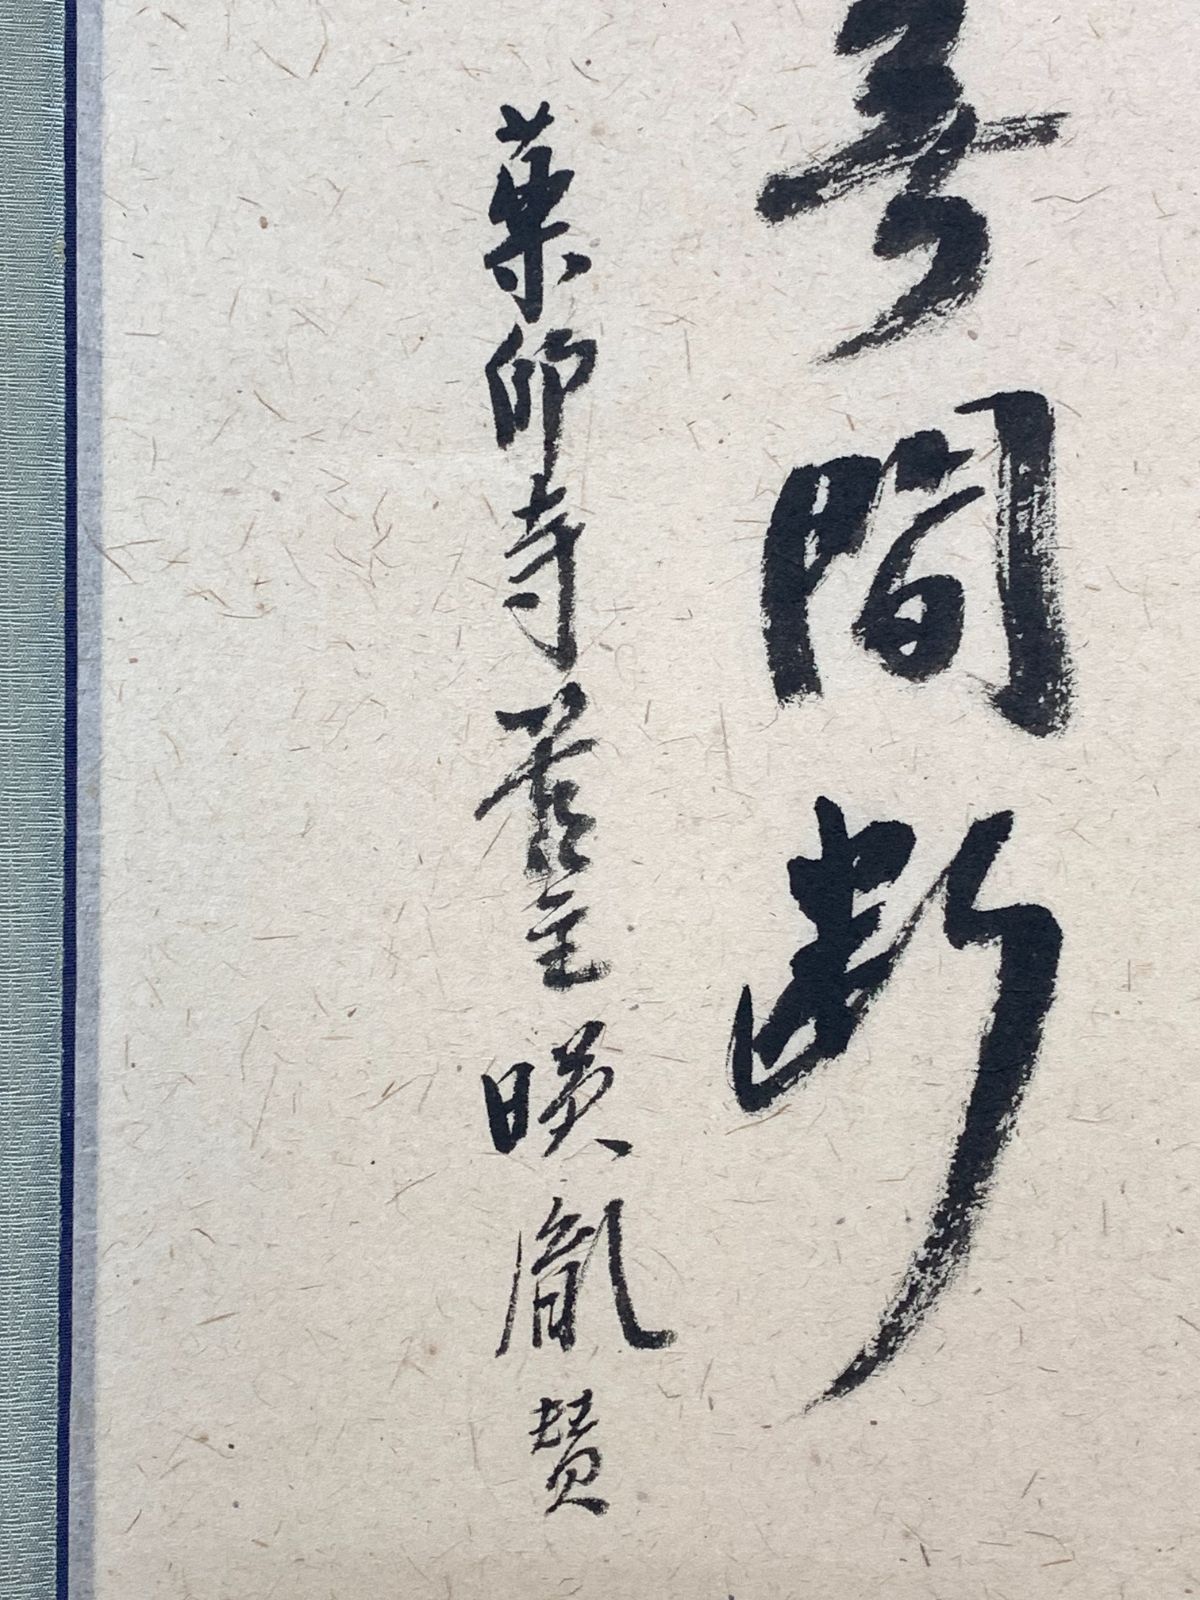 間断
薬師寺管主 暎胤 賛